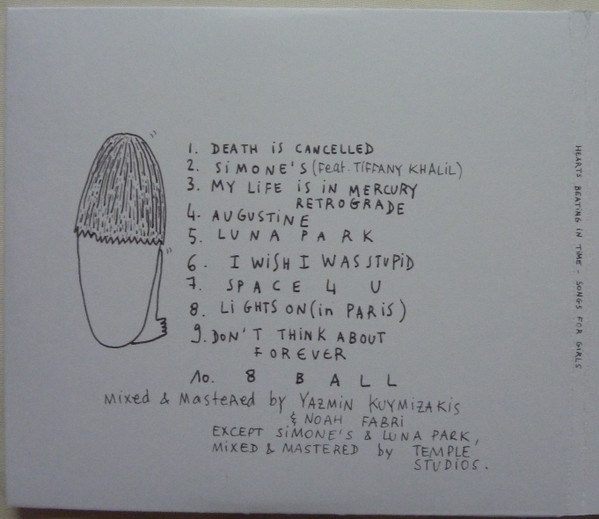 1. DEATH iS CANCELLED
2. SiMONE'S (Feat. TiFFANY KHALiL)
3. MY LIFE IS IN MERCURY
RETROGRADE
4. AUGUSTINE
5. LUNA PARK
6. I WiSH I WAS STUPiD
7. SPACE 4 U
8. LiGHTS ON (in PARiS)
9. DON'T THiNK ABOUT
FOREVER
10. 8 BALL
Mixed & MasteRed by YAZMiN KUYMiZAKiS
& NOAH FABRi
EXCEPT SiMONE'S & LUNA PARK,
MiXED & MASTERED by TEMPLE
STUDiOS.
HEARTS BEATING IN TIME - SONGS FOR GIRLS